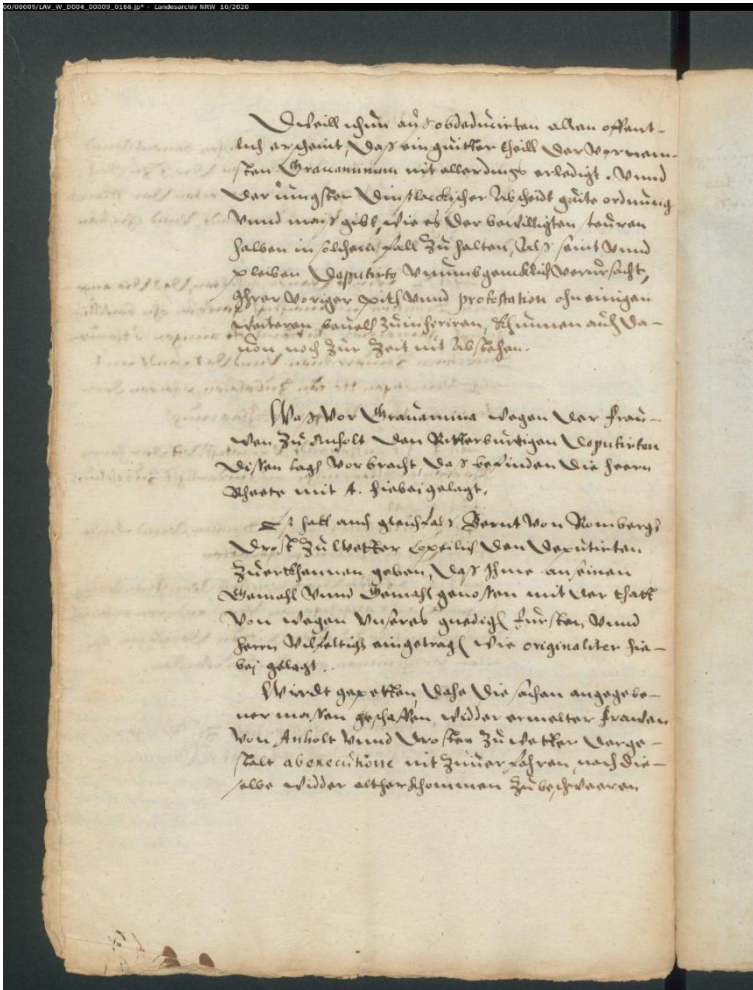 00/00009/LAV_W_D004_00009_0166.jp* - Landesarchiv NRW 10/2020
Dweill nhun auß obdeducirten allen offent-
lich erscheint, daß ein gutter theill der vornem-
sten Grauaminum nit allerdings erledigt. Vnnd
der jungster Dinßlackischer Abscheidt gutte ordnung
vnnd maß gibt, wie es der bewilligten steuren
halben in solchem fall zu halten, Alß seint vnnd
pleiben Deputirte vnumbgencklich verursacht,
Ihrer voriger pitt vnnd protestation ohn einigen
weiteren beuelh zu inheriren, khunnen auch da-
uon noch zur Zeit nit Abstehen.
Waß vor Grauamina wegen der Frau-
wen zu Anholt den Ritterburtigen Deputirten
dissen tagh vorbracht, daß befinden die herrn
Rhaete mit A. hiebei gelagt.
Eß hatt auch gleichfalß Bernt von Romberg
Drost zu Wetter den Deputirten
zuerkhennen geben, daß Ihme an seinen
Gemahl vnnd Gemahl genossen mit der thatt
von wegen vnseres gnedig Fursten vnnd
herrn vilfeltigh eingetrag wie originaliter hie-
bei gelagt.
Wirdt gepetten, dahe die sachen angegebe-
ner massen geschaffen, widder ermelter Frawen
von Anholt vnnd Drosten zu Wetter derge-
stalt ab executione nit zuuerfahren, noch die-
selbe widder altherkhommen zu beschweeren